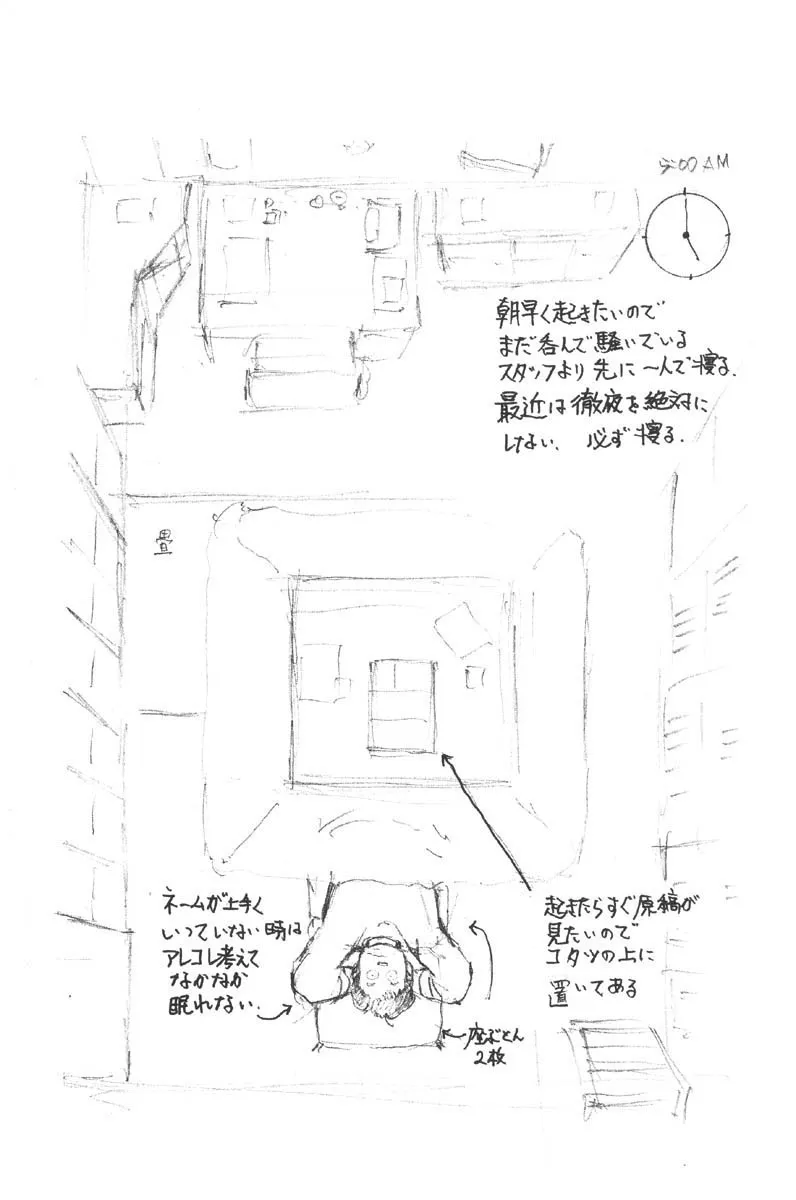 5:00 AM
朝早く起きたいので
まだ呑んで騒いでいる
スタッフより先に一人で寝る.
最近は徹夜を絶対に
しない. 必ず寝る.
畳
ネームが上手く
いっていない時は
アレコレ考えて
なかなか
眠れない.
起きたらすぐ原稿が
見たいので
コタツの上に
置いてある
座ぶとん
2枚